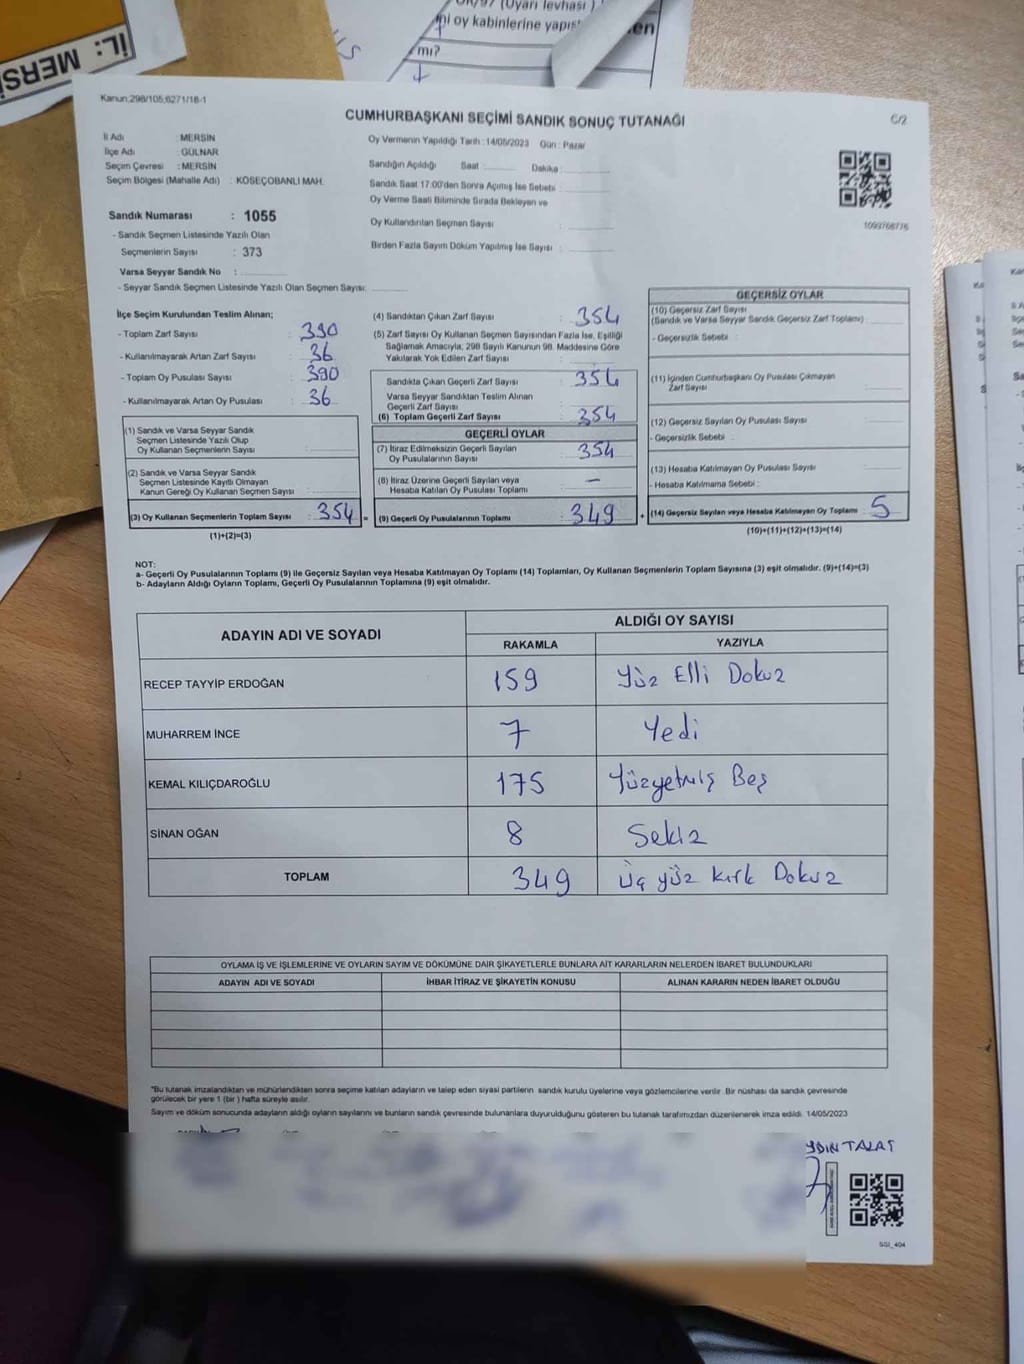 İL: MERSİ
(Uyarı levhası )
oy kabinlerine yapış
en
mı?
Kanun;298/105;6271/18-1
CUMHURBAŞKANI SEÇİMİ SANDIK SONUÇ TUTANAĞI
C/2
İl Adı : MERSİN
İlçe Adı : GÜLNAR
Seçim Çevresi : MERSİN
Seçim Bölgesi (Mahalle Adı) : KÖSEÇOBANLI MAH.
Oy Vermenin Yapıldığı Tarih : 14/05/2023 Gün : Pazar
Sandığın Açıldığı Saat Dakika :
Sandık Saat 17:00'den Sonra Açılmış İse Sebebi :
Oy Verme Saati Bitiminde Sırada Bekleyen ve
Oy Kullandırılan Seçmen Sayısı :
Birden Fazla Sayım Döküm Yapılmış İse Sayısı :
1099768776
Sandık Numarası : 1055
- Sandık Seçmen Listesinde Yazılı Olan
Seçmenlerin Sayısı : 373
Varsa Seyyar Sandık No :
- Seyyar Sandık Seçmen Listesinde Yazılı Olan Seçmen Sayısı:
İlçe Seçim Kurulundan Teslim Alınan;
- Toplam Zarf Sayısı : 390
- Kullanılmayarak Artan Zarf Sayısı : 36
- Toplam Oy Pusulası Sayısı : 390
- Kullanılmayarak Artan Oy Pusulası : 36
(1) Sandık ve Varsa Seyyar Sandık
Seçmen Listesinde Yazılı Olup
Oy Kullanan Seçmenlerin Sayısı :
(2) Sandık ve Varsa Seyyar Sandık
Seçmen Listesinde Kayıtlı Olmayan
Kanun Gereği Oy Kullanan Seçmen Sayısı :
(3) Oy Kullanan Seçmenlerin Toplam Sayısı : 354 =
(1)+(2)=(3)
(4) Sandıktan Çıkan Zarf Sayısı : 354
(5) Zarf Sayısı Oy Kullanan Seçmen Sayısından Fazla İse, Eşitliği
Sağlamak Amacıyla; 298 Sayılı Kanunun 98. Maddesine Göre
Yakılarak Yok Edilen Zarf Sayısı :
Sandıkta Çıkan Geçerli Zarf Sayısı : 354
Varsa Seyyar Sandıktan Teslim Alınan
Geçerli Zarf Sayısı :
(6) Toplam Geçerli Zarf Sayısı : 354
GEÇERLİ OYLAR
(7) İtiraz Edilmeksizin Geçerli Sayılan
Oy Pusulalarının Sayısı : 354
(8) İtiraz Üzerine Geçerli Sayılan veya
Hesaba Katılan Oy Pusulası Toplamı : –
(9) Geçerli Oy Pusulalarının Toplamı : 349 +
GEÇERSİZ OYLAR
(10) Geçersiz Zarf Sayısı
(Sandık ve Varsa Seyyar Sandık Geçersiz Zarf Toplamı) :
- Geçersizlik Sebebi :
(11) İçinden Cumhurbaşkanı Oy Pusulası Çıkmayan
Zarf Sayısı :
(12) Geçersiz Sayılan Oy Pusulası Sayısı :
- Geçersizlik Sebebi :
(13) Hesaba Katılmayan Oy Pusulası Sayısı :
- Hesaba Katılmama Sebebi :
(14) Geçersiz Sayılan veya Hesaba Katılmayan Oy Toplamı : 5
(10)+(11)+(12)+(13)=(14)
NOT:
a- Geçerli Oy Pusulalarının Toplamı (9) ile Geçersiz Sayılan veya Hesaba Katılmayan Oy Toplamı (14) Toplamları, Oy Kullanan Seçmenlerin Toplam Sayısına (3) eşit olmalıdır. (9)+(14)=(3)
b- Adayların Aldığı Oyların Toplamı, Geçerli Oy Pusulalarının Toplamına (9) eşit olmalıdır.
ADAYIN ADI VE SOYADI
ALDIĞI OY SAYISI
RAKAMLA YAZIYLA
RECEP TAYYİP ERDOĞAN 159 Yüz Elli Dokuz
MUHARREM İNCE 7 Yedi
KEMAL KILIÇDAROĞLU 175 Yüzyetmiş Beş
SİNAN OĞAN 8 Sekiz
TOPLAM 349 Üç yüz kırk Dokuz
OYLAMA İŞ VE İŞLEMLERİNE VE OYLARIN SAYIM VE DÖKÜMÜNE DAİR ŞİKAYETLERLE BUNLARA AİT KARARLARIN NELERDEN İBARET BULUNDUKLARI
ADAYIN ADI VE SOYADI İHBAR İTİRAZ VE ŞİKAYETİN KONUSU ALINAN KARARIN NEDEN İBARET OLDUĞU
"Bu tutanak imzalandıktan ve mühürlendikten sonra seçime katılan adayların ve talep eden siyasi partilerin sandık kurulu üyelerine veya gözlemcilerine verilir. Bir nüshası da sandık çevresinde
görülecek bir yere 1 (bir ) hafta süreyle asılır.
Sayım ve döküm sonucunda adayların aldığı oyların sayılarını ve bunların sandık çevresinde bulunanlara duyurulduğunu gösteren bu tutanak tarafımızdan düzenlenerek imza edildi. 14/05/2023
YDIN TALAT
SSI_404